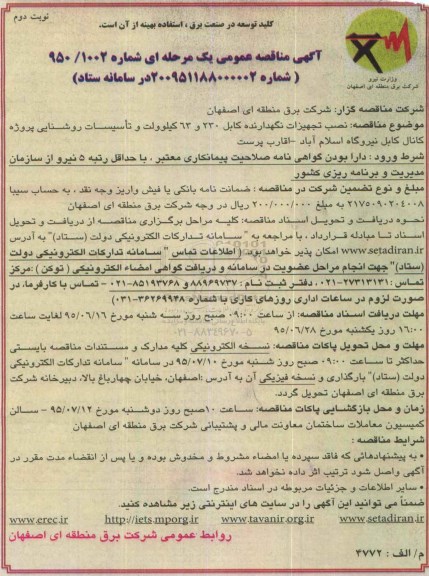 نوبت دوم
کلید توسعه در صنعت برق ، استفاده بهینه از آن است.
وزارت نیرو
شرکت برق منطقه ای اصفهان
آگهی مناقصه عمومی یک مرحله ای شماره ۱۰۰۲/ ۹۵۰
( شماره ۲۰۰۹۵۱۱۸۸۰۰۰۰۰۲در سامانه ستاد)
شرکت مناقصه گزار: شرکت برق منطقه ای اصفهان
موضوع مناقصه: نصب تجهیزات نگهدارنده کابل ۲۳۰ و ۶۳ کیلوولت و تأسیسات روشنایی پروژه
کانال کابل نیروگاه اسلام آباد –اقارب پرست
شرط ورود : دارا بودن گواهی نامه صلاحیت پیمانکاری معتبر ، با حداقل رتبه ۵ نیرو از سازمان
مدیریت و برنامه ریزی کشور
مبلغ و نوع تضمین شرکت در مناقصه : ضمانت نامه بانکی یا فیش واریز وجه نقد ، به حساب سیبا
۲۱۷۵۰۹۰۲۰۴۰۰۸ به مبلغ ۲۰۰/۰۰۰/۰۰۰ ریال در وجه شرکت برق منطقه ای اصفهان
نحوه دریافت و تحویل اسناد مناقصه: کلیه مراحل برگزاری مناقصه از دریافت و تحویل
اسناد تا مبادله قرارداد ، با مراجعه به " سامانه تدارکات الکترونیکی دولت (ستاد)" به آدرس
www.setadiran.ir امکان پذیر خواهد بود (اطلاعات تماس "سامانه تدارکات الکترونیکی دولت
(ستاد)" جهت انجام مراحل عضویت در سامانه و دریافت گواهی امضاء الکترونیکی ( توکن ) :مرکز
تماس: ۲۷۳۱۳۱۳۱-۰۲۱، دفتر ثبت نام : ۸۸۹۶۹۷۳۷و ۸۵۱۹۳۷۶۸-۰۲۱ – تماس با کارفرما، در
صورت لزوم در ساعات اداری روزهای کاری با شماره ۳۶۲۶۹۹۴۸-۰۳۱)
مهلت دریافت اسناد مناقصه: از ساعت ۰۹:۰۰ صبح روز سه شنبه مورخ ۹۵/۰۶/۱۶ لغایت ساعت
۱۶:۰۰ روز یکشنبه مورخ ۹۵/۰۶/۲۸
مهلت و محل تحویل پاکات مناقصه: نسخه الکترونیکی کلیه مدارک و مستندات مناقصه بایستی
حداکثر تا ساعت ۰۹:۰۰ صبح روز شنبه مورخ ۹۵/۰۷/۱۰ در سامانه " سامانه تدارکات الکترونیکی
دولت (ستاد)" بارگذاری و نسخه فیزیکی آن به آدرس :اصفهان، خیابان چهارباغ بالا، دبیرخانه شرکت
برق منطقه ای اصفهان تحویل گردد.
زمان و محل بازگشایی پاکات مناقصه: ساعت ۱۰صبح روز دوشنبه مورخ ۹۵/۰۷/۱۲ – سالن
کمیسیون معاملات ساختمان معاونت مالی و پشتیبانی شرکت برق منطقه ای اصفهان
شرایط مناقصه :
• به پیشنهادهائی که فاقد سپرده یا امضاء مشروط و مخدوش بوده و یا پس از انقضاء مدت مقرر در
آگهی واصل شود ترتیب اثر داده نخواهد شد.
• سایر اطلاعات و جزئیات مربوطه در اسناد مندرج است.
ضمناً می توانید این آگهی را در سایت های اینترنتی زیر مشاهده کنید.
www.erec.ir http://iets.mporg.ir www.tavanir.org.ir www.setadiran.ir
روابط عمومی شرکت برق منطقه ای اصفهان
م/ الف : ۴۷۷۲